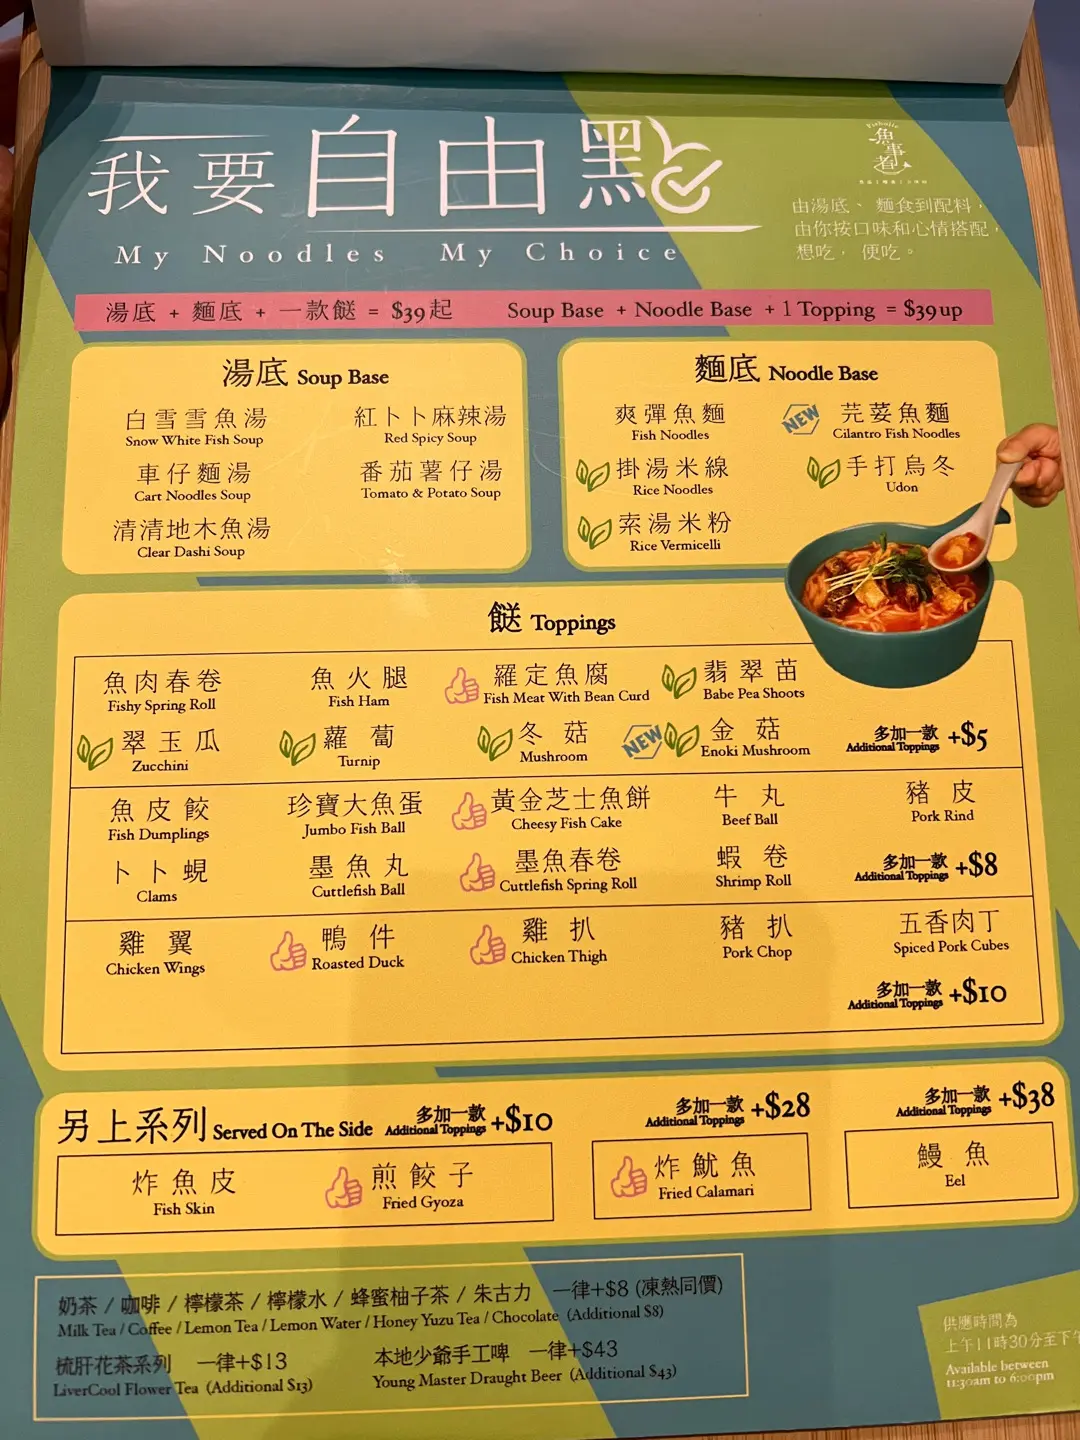 我要自由點
My Noodles My Choice
Fisholic
魚事者
由湯底、麵食到配料，
由你按口味和心情搭配，
想吃，便吃。
湯底 + 麵底 + 一款餸 = $39起 Soup Base + Noodle Base + 1 Topping = $39up
湯底 Soup Base
白雪雪魚湯 紅卜卜麻辣湯
Snow White Fish Soup Red Spicy Soup
車仔麵湯 番茄薯仔湯
Cart Noodles Soup Tomato & Potato Soup
清清地木魚湯
Clear Dashi Soup
麵底 Noodle Base
爽彈魚麵 NEW 芫荽魚麵
Fish Noodles Cilantro Fish Noodles
掛湯米線 手打烏冬
Rice Noodles Udon
索湯米粉
Rice Vermicelli
餸 Toppings
魚肉春卷 魚火腿 羅定魚腐 翡翠苗
Fishy Spring Roll Fish Ham Fish Meat With Bean Curd Babe Pea Shoots
翠玉瓜 蘿蔔 冬菇 NEW 金菇 多加一款 +$5
Zucchini Turnip Mushroom Enoki Mushroom Additional Toppings
魚皮餃 珍寶大魚蛋 黃金芝士魚餅 牛丸 豬皮
Fish Dumplings Jumbo Fish Ball Cheesy Fish Cake Beef Ball Pork Rind
卜卜蜆 墨魚丸 墨魚春卷 蝦卷 多加一款 +$8
Clams Cuttlefish Ball Cuttlefish Spring Roll Shrimp Roll Additional Toppings
雞翼 鴨件 雞扒 豬扒 五香肉丁
Chicken Wings Roasted Duck Chicken Thigh Pork Chop Spiced Pork Cubes
多加一款 +$10
Additional Toppings
另上系列 Served On The Side 多加一款 +$10
Additional Toppings
炸魚皮 煎餃子
Fish Skin Fried Gyoza
多加一款 +$28
Additional Toppings
炸魷魚
Fried Calamari
多加一款 +$38
Additional Toppings
鰻魚
Eel
奶茶 / 咖啡 / 檸檬茶 / 檸檬水 / 蜂蜜柚子茶 / 朱古力 一律+$8 (凍熱同價)
Milk Tea / Coffee / Lemon Tea / Lemon Water / Honey Yuzu Tea / Chocolate (Additional $8)
梳肝花茶系列 一律+$13 本地少爺手工啤 一律+$43
LiverCool Flower Tea (Additional $13) Young Master Draught Beer (Additional $43)
供應時間為
上午11時30分至下午
Available between
11:30am to 6:00pm